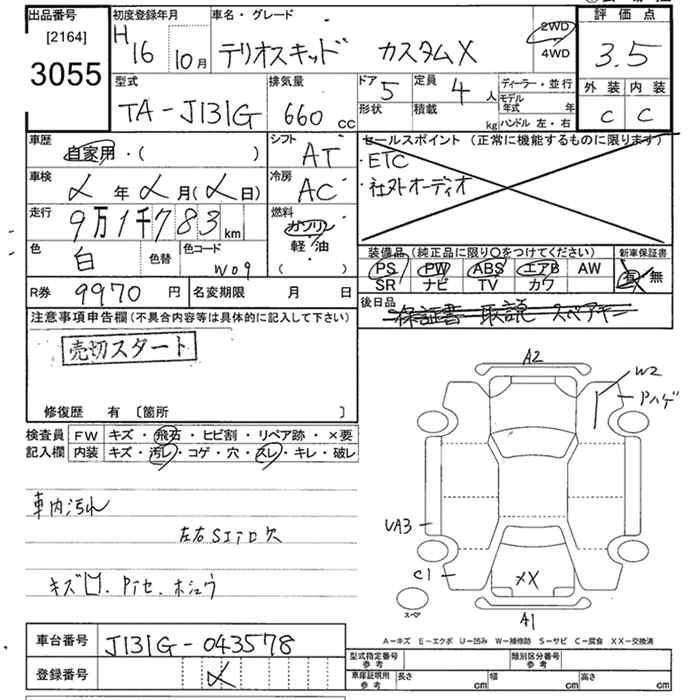 出品番号
[2164]
3055
初度登録年月
H16 10月
車名・グレード
テリオスキッド カスタムX
2WD
4WD
評価点
3.5
外装 内装
C C
型式
TA-J131G
排気量
660 CC
ドア 5
形状
定員 4 人
積載 kg
ディーラー・並行
モデル年式 年
ハンドル 左・右
車歴
自家用・( )
シフト
AT
セールスポイント (正常に機能するものに限ります)
・ETC
・社外オーディオ
車検
〆年〆月(〆日)
冷房
AC
走行
9万1千783km
燃料
ガソリン
軽・油
( )
色
白
色替
色コード
W09
装備品(純正品に限り○をつけてください)
PS PW ABS エアB AW
SR ナビ TV カワ
新車保証書
有 無
R券 9970 円
名変期限 月 日
後日品
保証書 取説 スペアキー
注意事項申告欄(不具合内容等は具体的に記入して下さい)
売切スタート
修復歴 有 〔箇所 〕
検査員記入欄
FW キズ・飛石・ヒビ割・リペア跡・×要
内装 キズ・汚レ・コゲ・穴・スレ・キレ・破レ
車内汚れ
左右SITロ欠
キズ凹. Pイセ. ホシュウ
A2
W2
Pハゲ
UA3
C1
XX
A1
スペア
A-キズ E-エクボ U-凹み W-補修跡 S-サビ C-腐食 XX-交換済
車台番号 J131G-043578
登録番号 〆
型式指定番号 参考
類別区分番号 参考
車庫証明用 参考 長さ cm 幅 cm 高さ cm